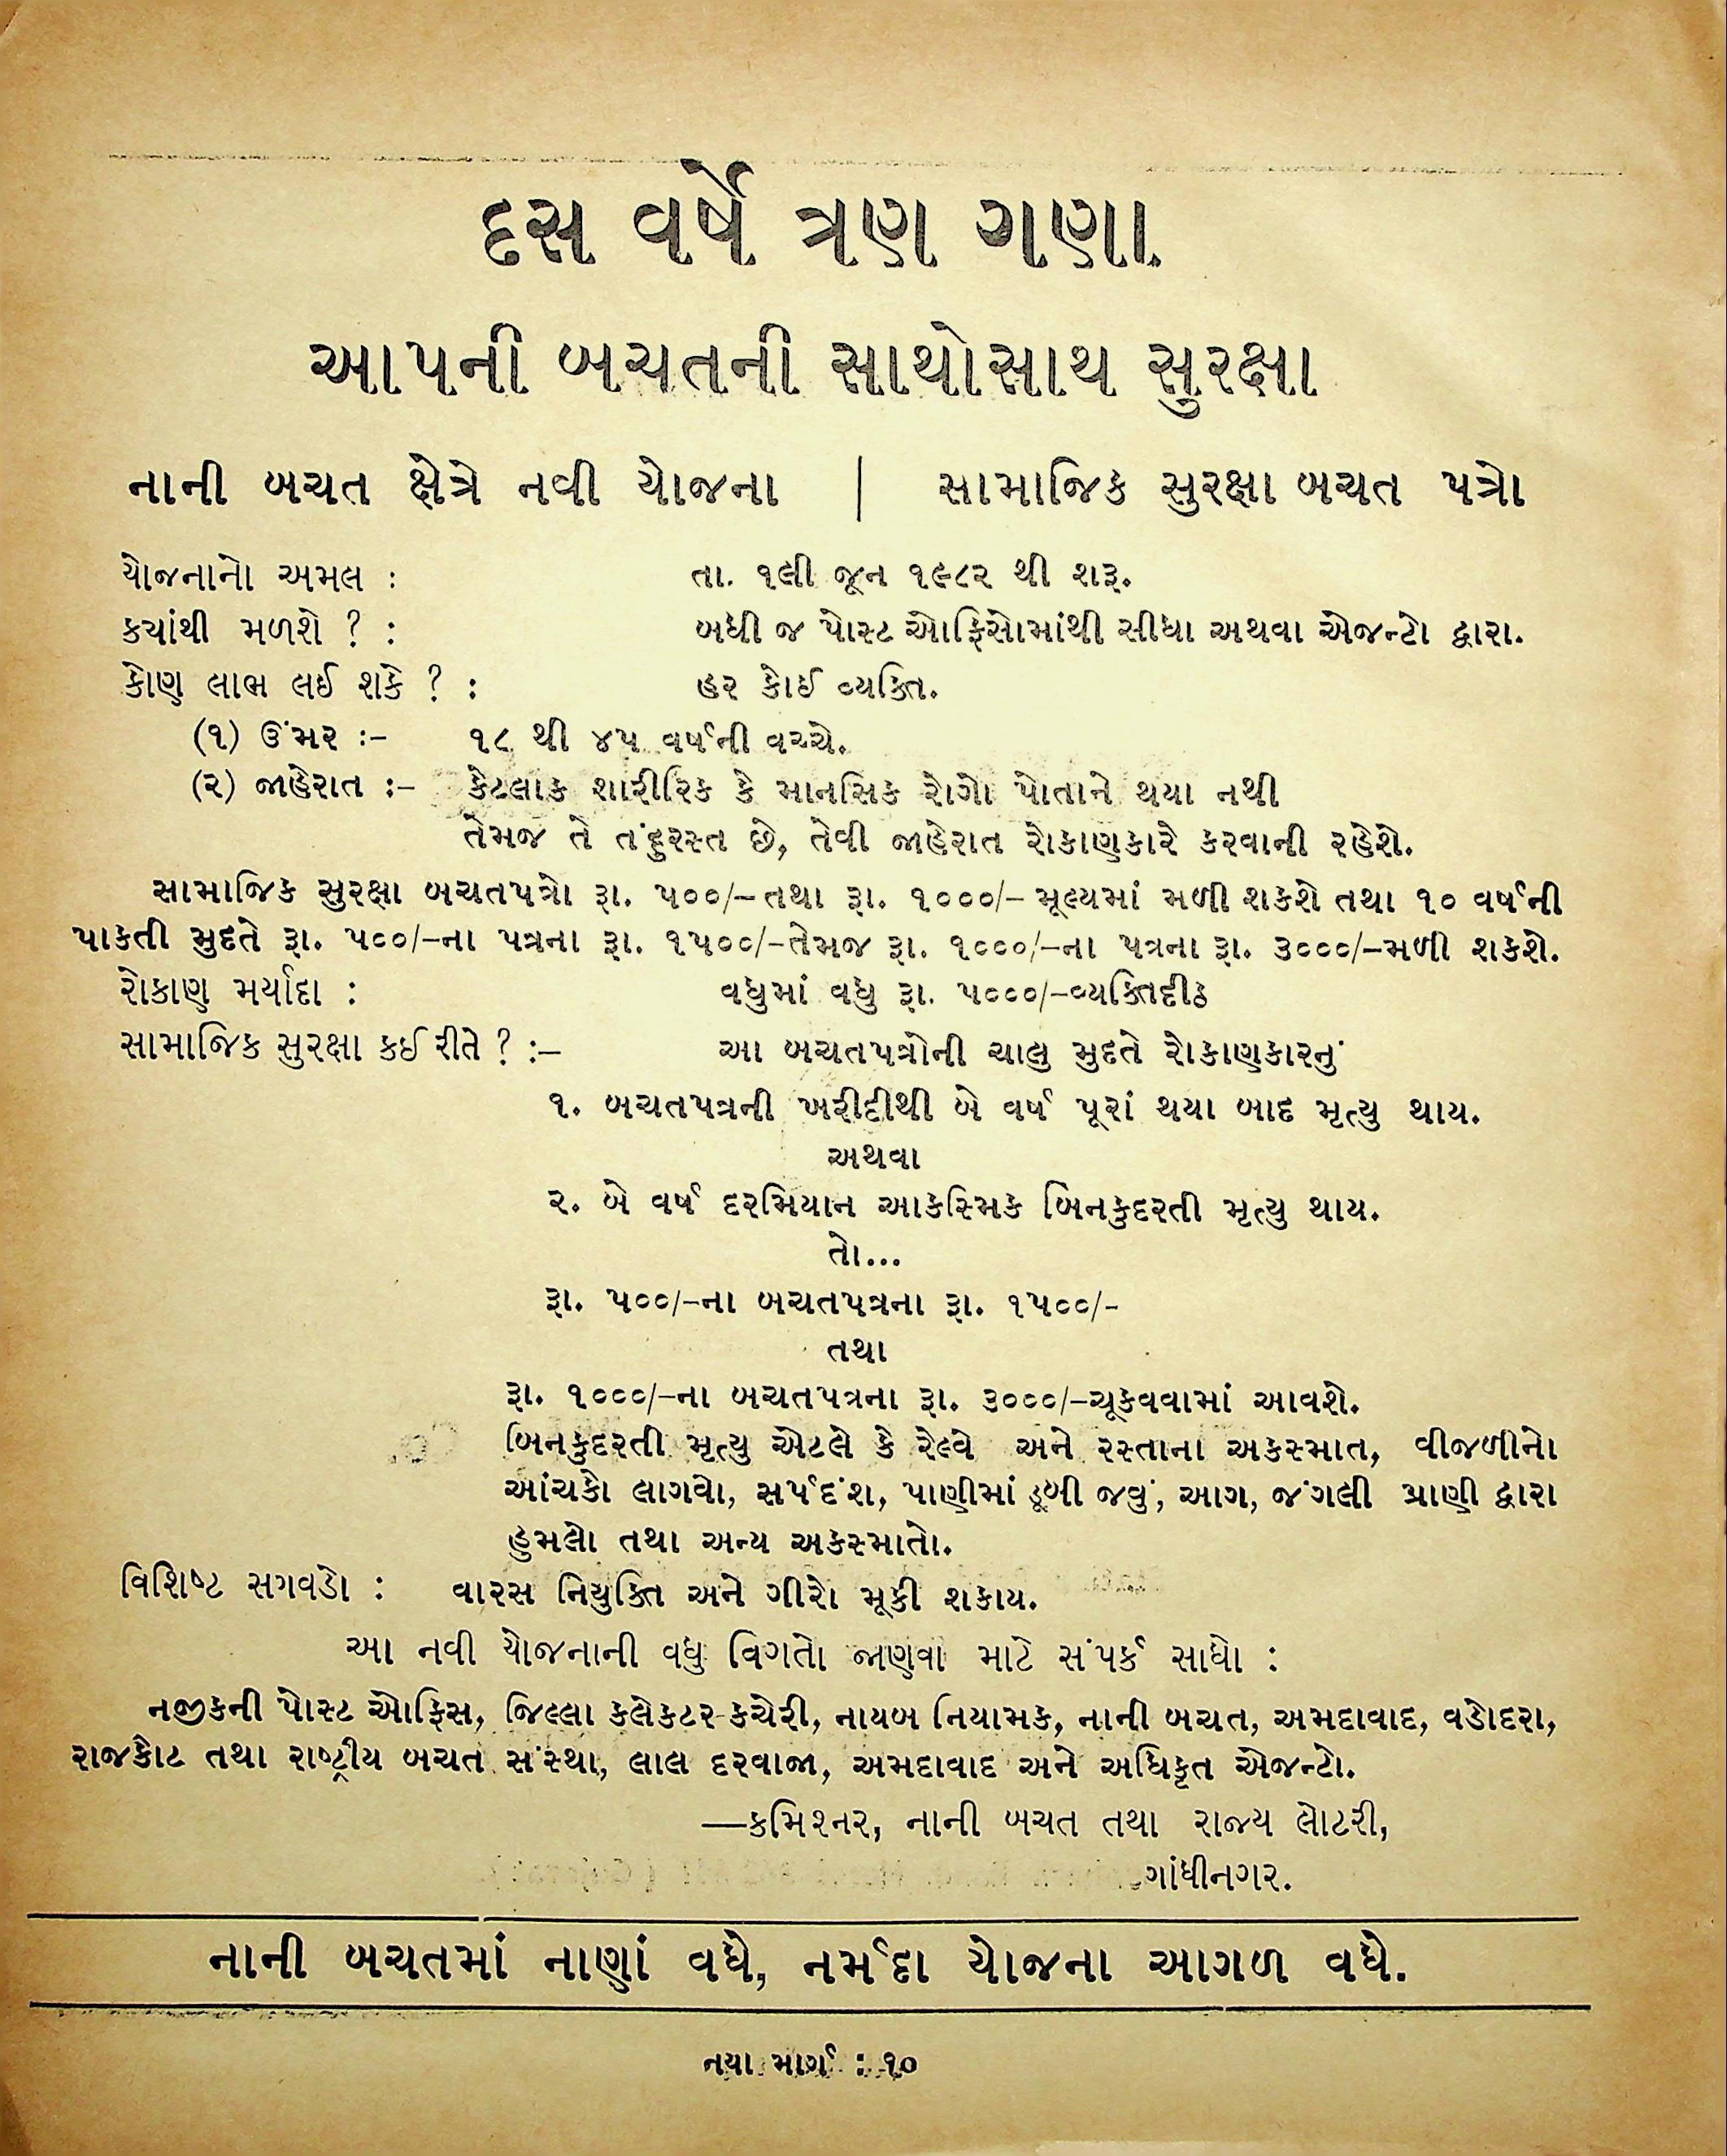 દસ વર્ષે ત્રણ ગણા
આપની બચતની સાથોસાથ સુરક્ષા
નાની બચત ક્ષેત્રે નવી યોજના | સામાજિક સુરક્ષા બચત પત્રો
યોજનાનો અમલ : તા. ૧લી જૂન ૧૯૮૨ થી શરૂ.
કયાંથી મળશે ? : બધી જ પોસ્ટ ઓફિસોમાંથી સીધા અથવા એજન્ટો દ્વારા.
કોણ લાભ લઈ શકે ? : હર કોઈ વ્યક્તિ.
(૧) ઉંમર :- ૧૮ થી ૪૫ વર્ષની વચ્ચે.
(૨) જાહેરાત :- કેટલાક શારીરિક કે માનસિક રોગો પોતાને થયા નથી
તેમજ તે તંદુરસ્ત છે, તેવી જાહેરાત રોકાણકારે કરવાની રહેશે.
સામાજિક સુરક્ષા બચતપત્રો રૂા. ૫૦૦/– તથા રૂા. ૧૦૦૦/– મૂલ્યમાં મળી શકશે તથા ૧૦ વર્ષની
પાકતી મુદતે રૂા. ૫૦૦/–ના પત્રના રૂા. ૧૫૦૦/–તેમજ રૂા. ૧૦૦૦/–ના પત્રના રૂા. ૩૦૦૦/–મળી શકશે.
રોકાણ મર્યાદા : વધુમાં વધુ રૂા. ૫૦૦૦/–વ્યક્તિદીઠ
સામાજિક સુરક્ષા કઈ રીતે ? :– આ બચતપત્રોની ચાલુ મુદતે રોકાણકારનું
૧. બચતપત્રની ખરીદીથી બે વર્ષ પૂરાં થયા બાદ મૃત્યુ થાય.
અથવા
૨. બે વર્ષ દરમિયાન આકસ્મિક બિનકુદરતી મૃત્યુ થાય.
તો...
રૂા. ૫૦૦/–ના બચતપત્રના રૂા. ૧૫૦૦/–
તથા
રૂા. ૧૦૦૦/–ના બચતપત્રના રૂા. ૩૦૦૦/–ચૂકવવામાં આવશે.
બિનકુદરતી મૃત્યુ એટલે કે રેલ્વે અને રસ્તાના અકસ્માત, વીજળીનો
આંચકો લાગવો, સર્પદંશ, પાણીમાં ડૂબી જવું, આગ, જંગલી પ્રાણી દ્વારા
હુમલો તથા અન્ય અકસ્માતો.
વિશિષ્ટ સગવડો : વારસ નિયુક્તિ અને ગીરો મૂકી શકાય.
આ નવી યોજનાની વધુ વિગતો જાણવા માટે સંપર્ક સાધો :
નજીકની પોસ્ટ ઓફિસ, જિલ્લા કલેકટર-કચેરી, નાયબ નિયામક, નાની બચત, અમદાવાદ, વડોદરા,
રાજકોટ તથા રાષ્ટ્રીય બચત સંસ્થા, લાલ દરવાજા, અમદાવાદ અને અધિકૃત એજન્ટો.
—કમિશ્નર, નાની બચત તથા રાજ્ય લોટરી,
ગાંધીનગર.
નાની બચતમાં નાણાં વધે, નર્મદા યોજના આગળ વધે.
નયા માર્ગ : ૧૦